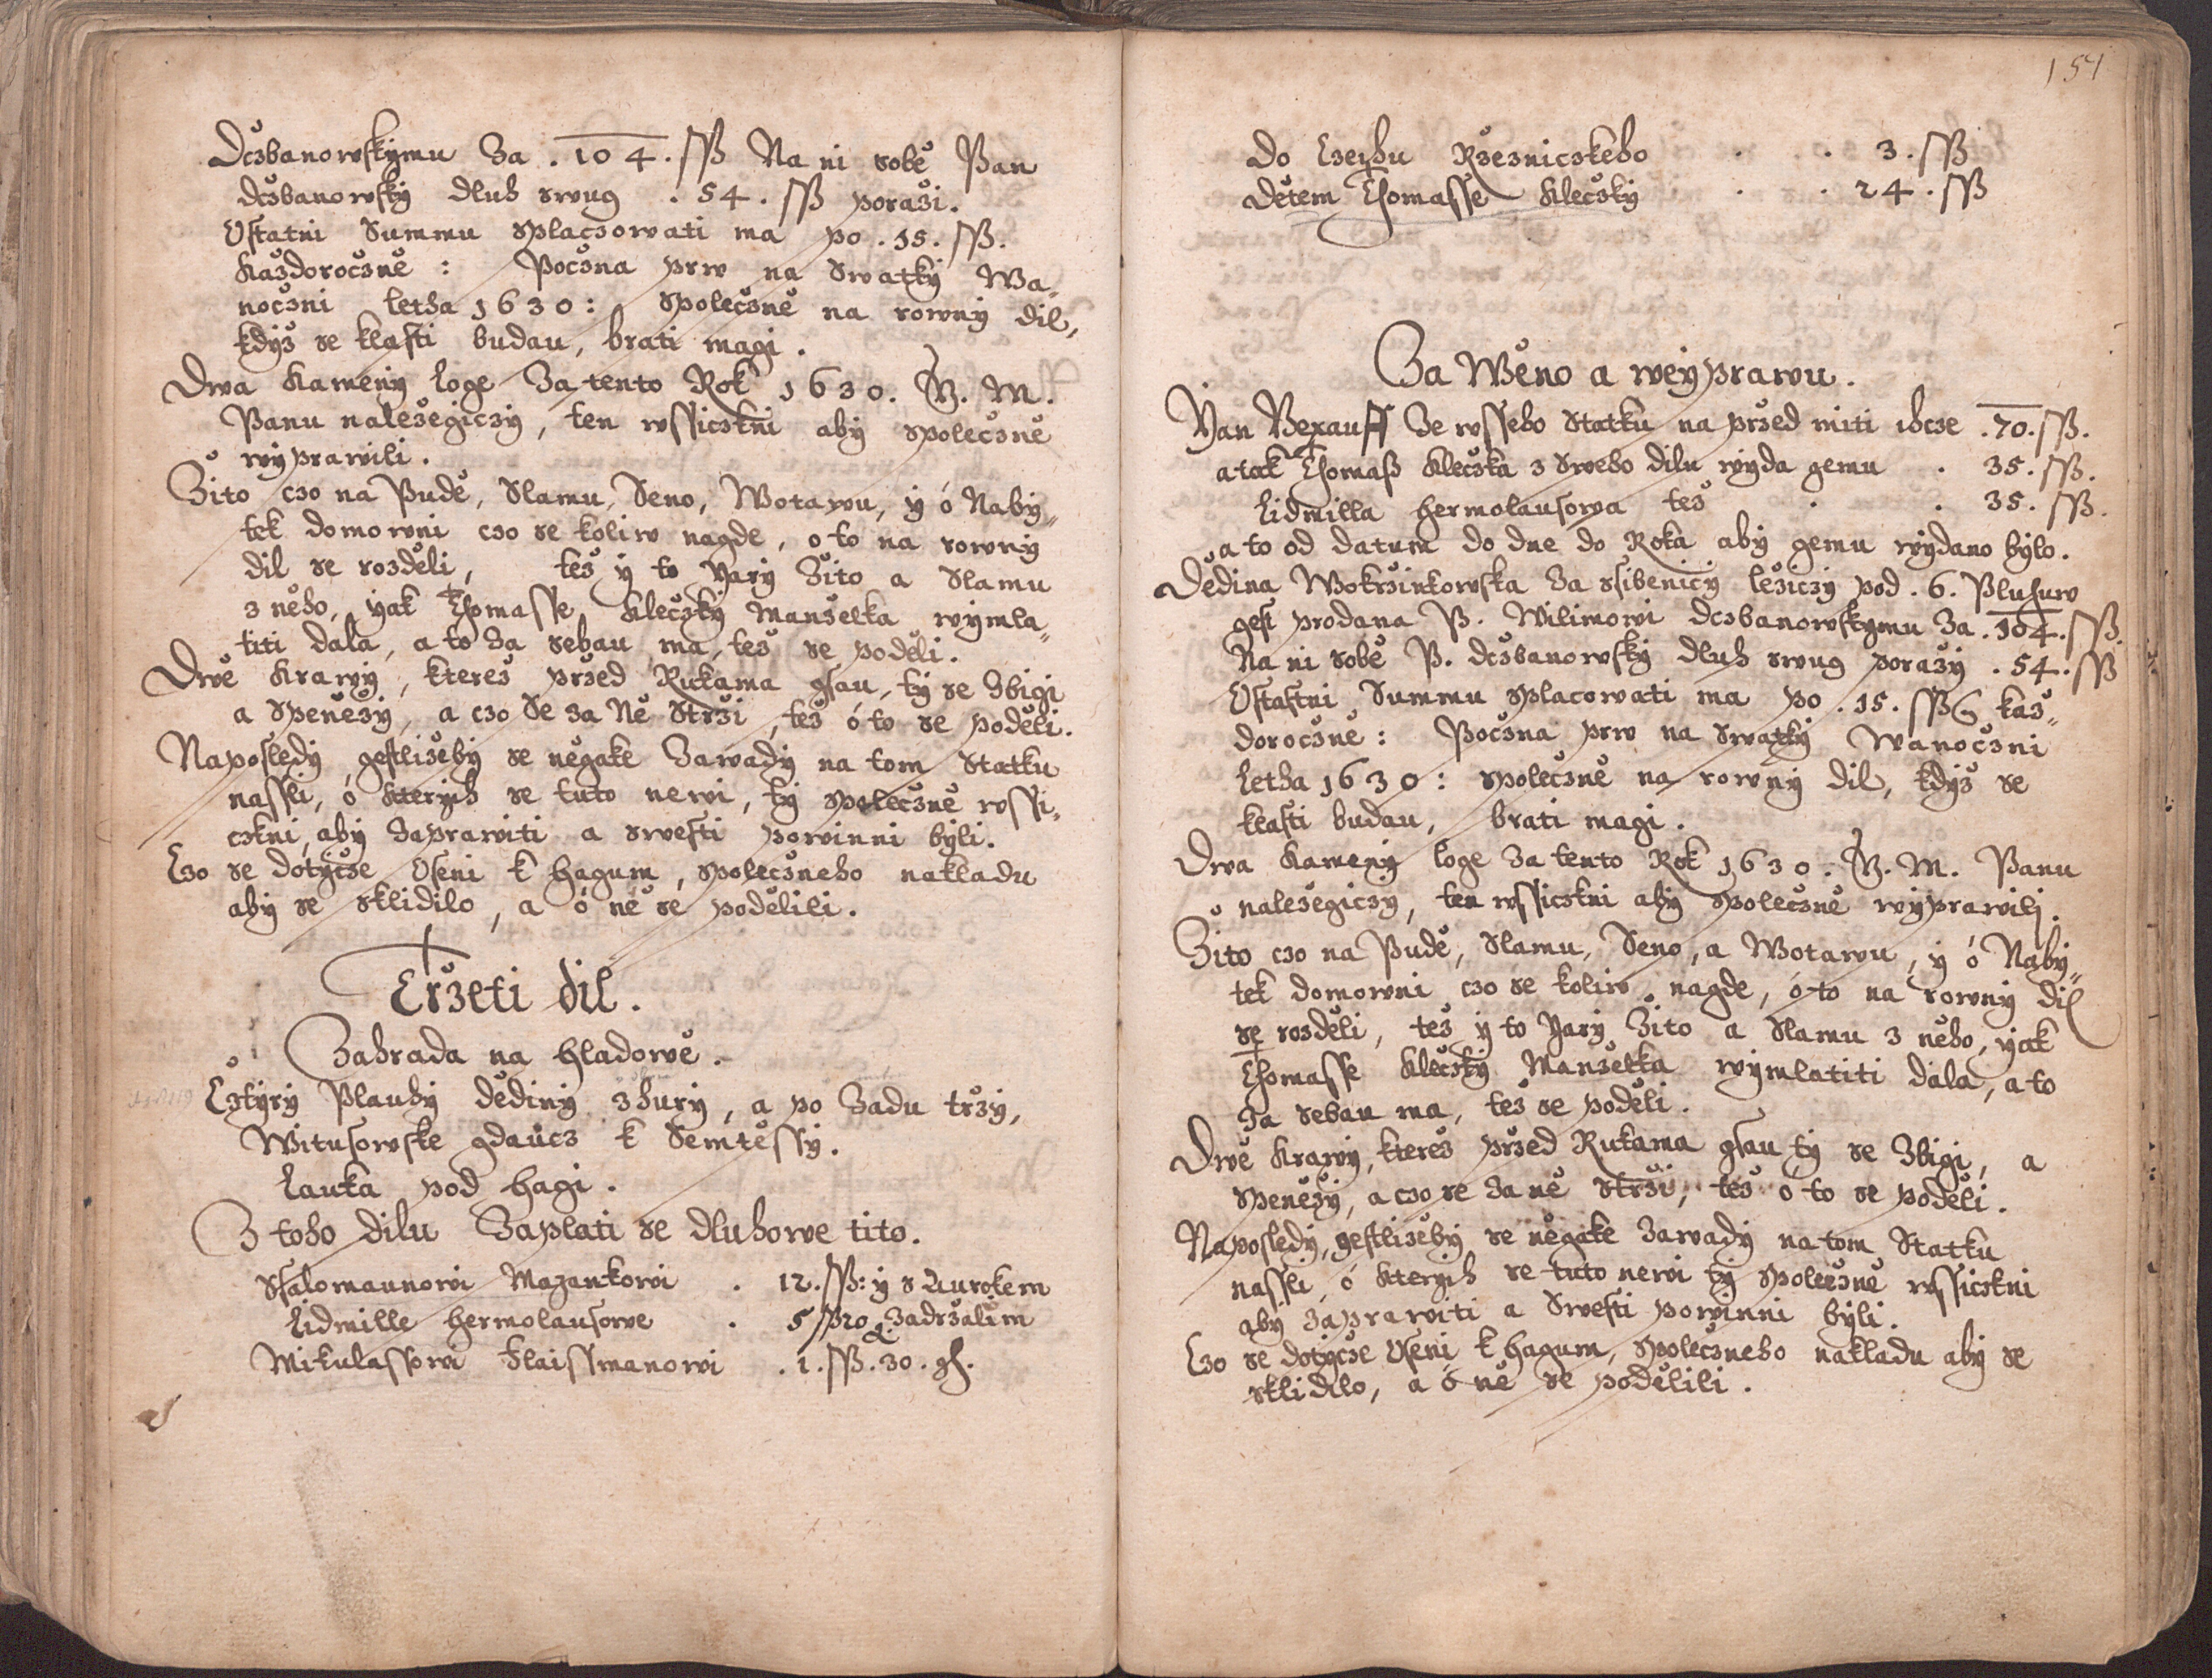 Dczbanowskýmu Za . 104 . ſſß Na ni sobě Pan
dczbanowský dluh swug . 54 . ſſß porazi.
Oſtatni Summu splaczowati ma po . 15 . ſſß.
každoroczně : Poczna prw na Swatký Wa„
noczni letha 1630 : společzně na rowný dil,
kdýž se klaſti budau, brati magi.
Dwa Kamený loge Za tento Rok 1630. G. M.
Panu náležegiczý, ten wſſiczkni abý společzně
wýprawili.
Žito czo na Pudě, Slamu, Seno, Wotawu, ý ó Nabý„
tek domowni czo se koliw nagde, o to na rowný
dil se rozděli, též ý to Yarý Žito a Slamu
z něho, yak Thomaſſe Kleczký Manželka wýmla„
titi dala, a to Za sebau ma, též se poděli.
Dwě Krawý, kterež przed Rukama gſau, tý se Zbigi
a Speněžý, a czo Se za Ně Strži, též ó to se poděli.
Naposledý, geſtližebý se něgake Zawadý na tom Statku
naſſli, ó kterých se tuto newi, tý společzně wſſi„
czkni, abý Zaprawiti a sweſti powinni býli.
Czo se dotýcže Oſeni k hagum, společzneho nakladu
abý se sklidilo, a ó ně se podělili.
Trzeti dil.
Zahrada na hladowě.
Cztýrý Plauhý dědiný zhurý, a po Zadu trzý,
Wituſowske gdaucz k Semtěſſý.
Lauka pod hagi.
Z toho dilu Zaplati se dluhowe tito.
Sſalomaunowi Mazankowi . 12. ſſß: ý s Aurokem
Lidmille hermolauſowe . 5 ſſß zo & Zadrzalim
Mikulaſſowi Flaiſſmanowi . 1. ſſß. 30. gſ.
154
do Czechu Rzezniczkeho . . 3. ſſß
dětem Thomaſſe Kleczký . . 24. ſſß
Za Wěno a weýprawu.
Yan Bexauſſ Ze wſſeho Statku na przed miti chcze . 70. ſſß.
a tak Thomaß Kleczka z Sweho dilu wýda gemu . 35. ſſß.
Lidmilla hermolauſowa též . . 35. ſſß.
a to od datum do dne do Roka abý gemu wýdano býlo.
Dědina Wokrzinkowska Za sſibenicý ležiczý pod . 6. Pluhuw
geſt prodana P. Wilimowi dczbanowskýmu Za . 104. ſſß.
Na ni sobě P. dczbanowský dluh swug porazý . 54. ſſß
Oſtaſtni Summu splacowati ma po . 15. ſſß každ„
doroczně : Poczna prw na Swatký Wanoczni
Letha 1630 : společzně na rowný dil, kdýž se
klaſti budau, brati magi.
Dwa Kamený loge Za tento Rok 1630. G. M. Panu
náležegiczý, ten wſſiczkni abý společzně wýprawilj.
Žito czo na Pudě, Slamu, Seno, a Wotawu, ý ó Nabý„
tek domowni czo se koliw nagde, ó to na rowný dil
se rozděli, též ý to Yarý Žito a Slamu z něho, yak
Thomaſſe Kleczký Manželka wýmlatiti dala, a to
Za sebau ma, též se poděli.
Dwě Krawý, kterež przed Rukama gſau tý se Zbigi, a
Speněžý, a czo se Za ně Strži, též ó to se poděli.
Naposledý, geſtližebý se něgake Zawadý na tom Statku
naſſli, ó kterých se tuto newi tý společzně wſſiczkni
abý Zaprawiti a Sweſti powinni býli.
Czo se dotýcže Oſeni k hagum, společzneho nakladu abý se
sklidilo, a ó ně se podělili.